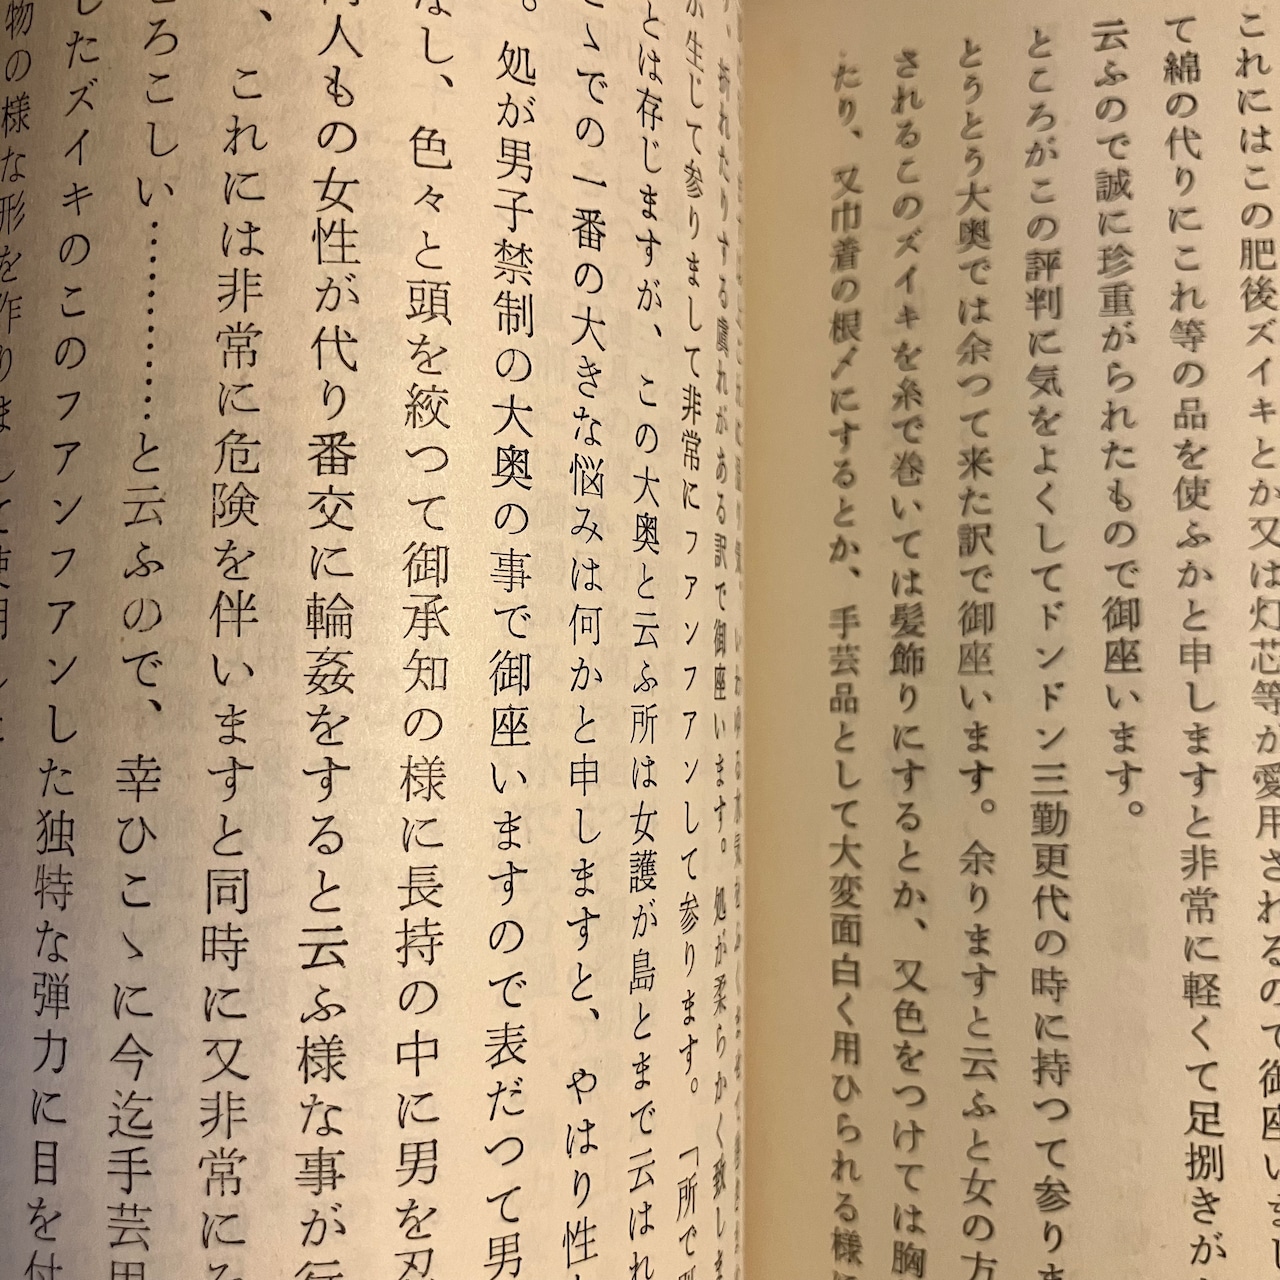 これにはこの肥後ズイキとか又は灯芯等が愛用されるので御座いまし
て綿の代りにこれ等の品を使ふかと申しますと非常に軽くて足捌きが
云ふので誠に珍重がられたもので御座います。
ところがこの評判に気をよくしてドンドン三勤更代の時に持つて参りま
とうとう大奥では余つて来た訳で御座います。余りますと云ふと女の方
されるこのズイキを糸で巻いては髪飾りにするとか、又色をつけては胸
たり、又巾着の根〆にするとか、手芸品として大変面白く用ひられる様に
折れたりする虞れがある訳で御座います。処が柔らかく致しま
生じて参りまして非常にフアンフアンして参ります。「所で
とは存じますが、この大奥と云ふ所は女護が島とまで云はれ
ゝでの一番の大きな悩みは何かと申しますと、やはり性
。処が男子禁制の大奥の事で御座いますので表だつて男
なし、色々と頭を絞つて御承知の様に長持の中に男を忍
人もの女性が代り番交に輪姦をすると云ふ様な事が行
、これには非常に危険を伴いますと同時に又非常に
ろこしい…………と云ふので、幸ひこゝに今迄手芸用
したズイキのこのフアンフアンした独特な弾力に目を付
物の様な形を作りまして使用